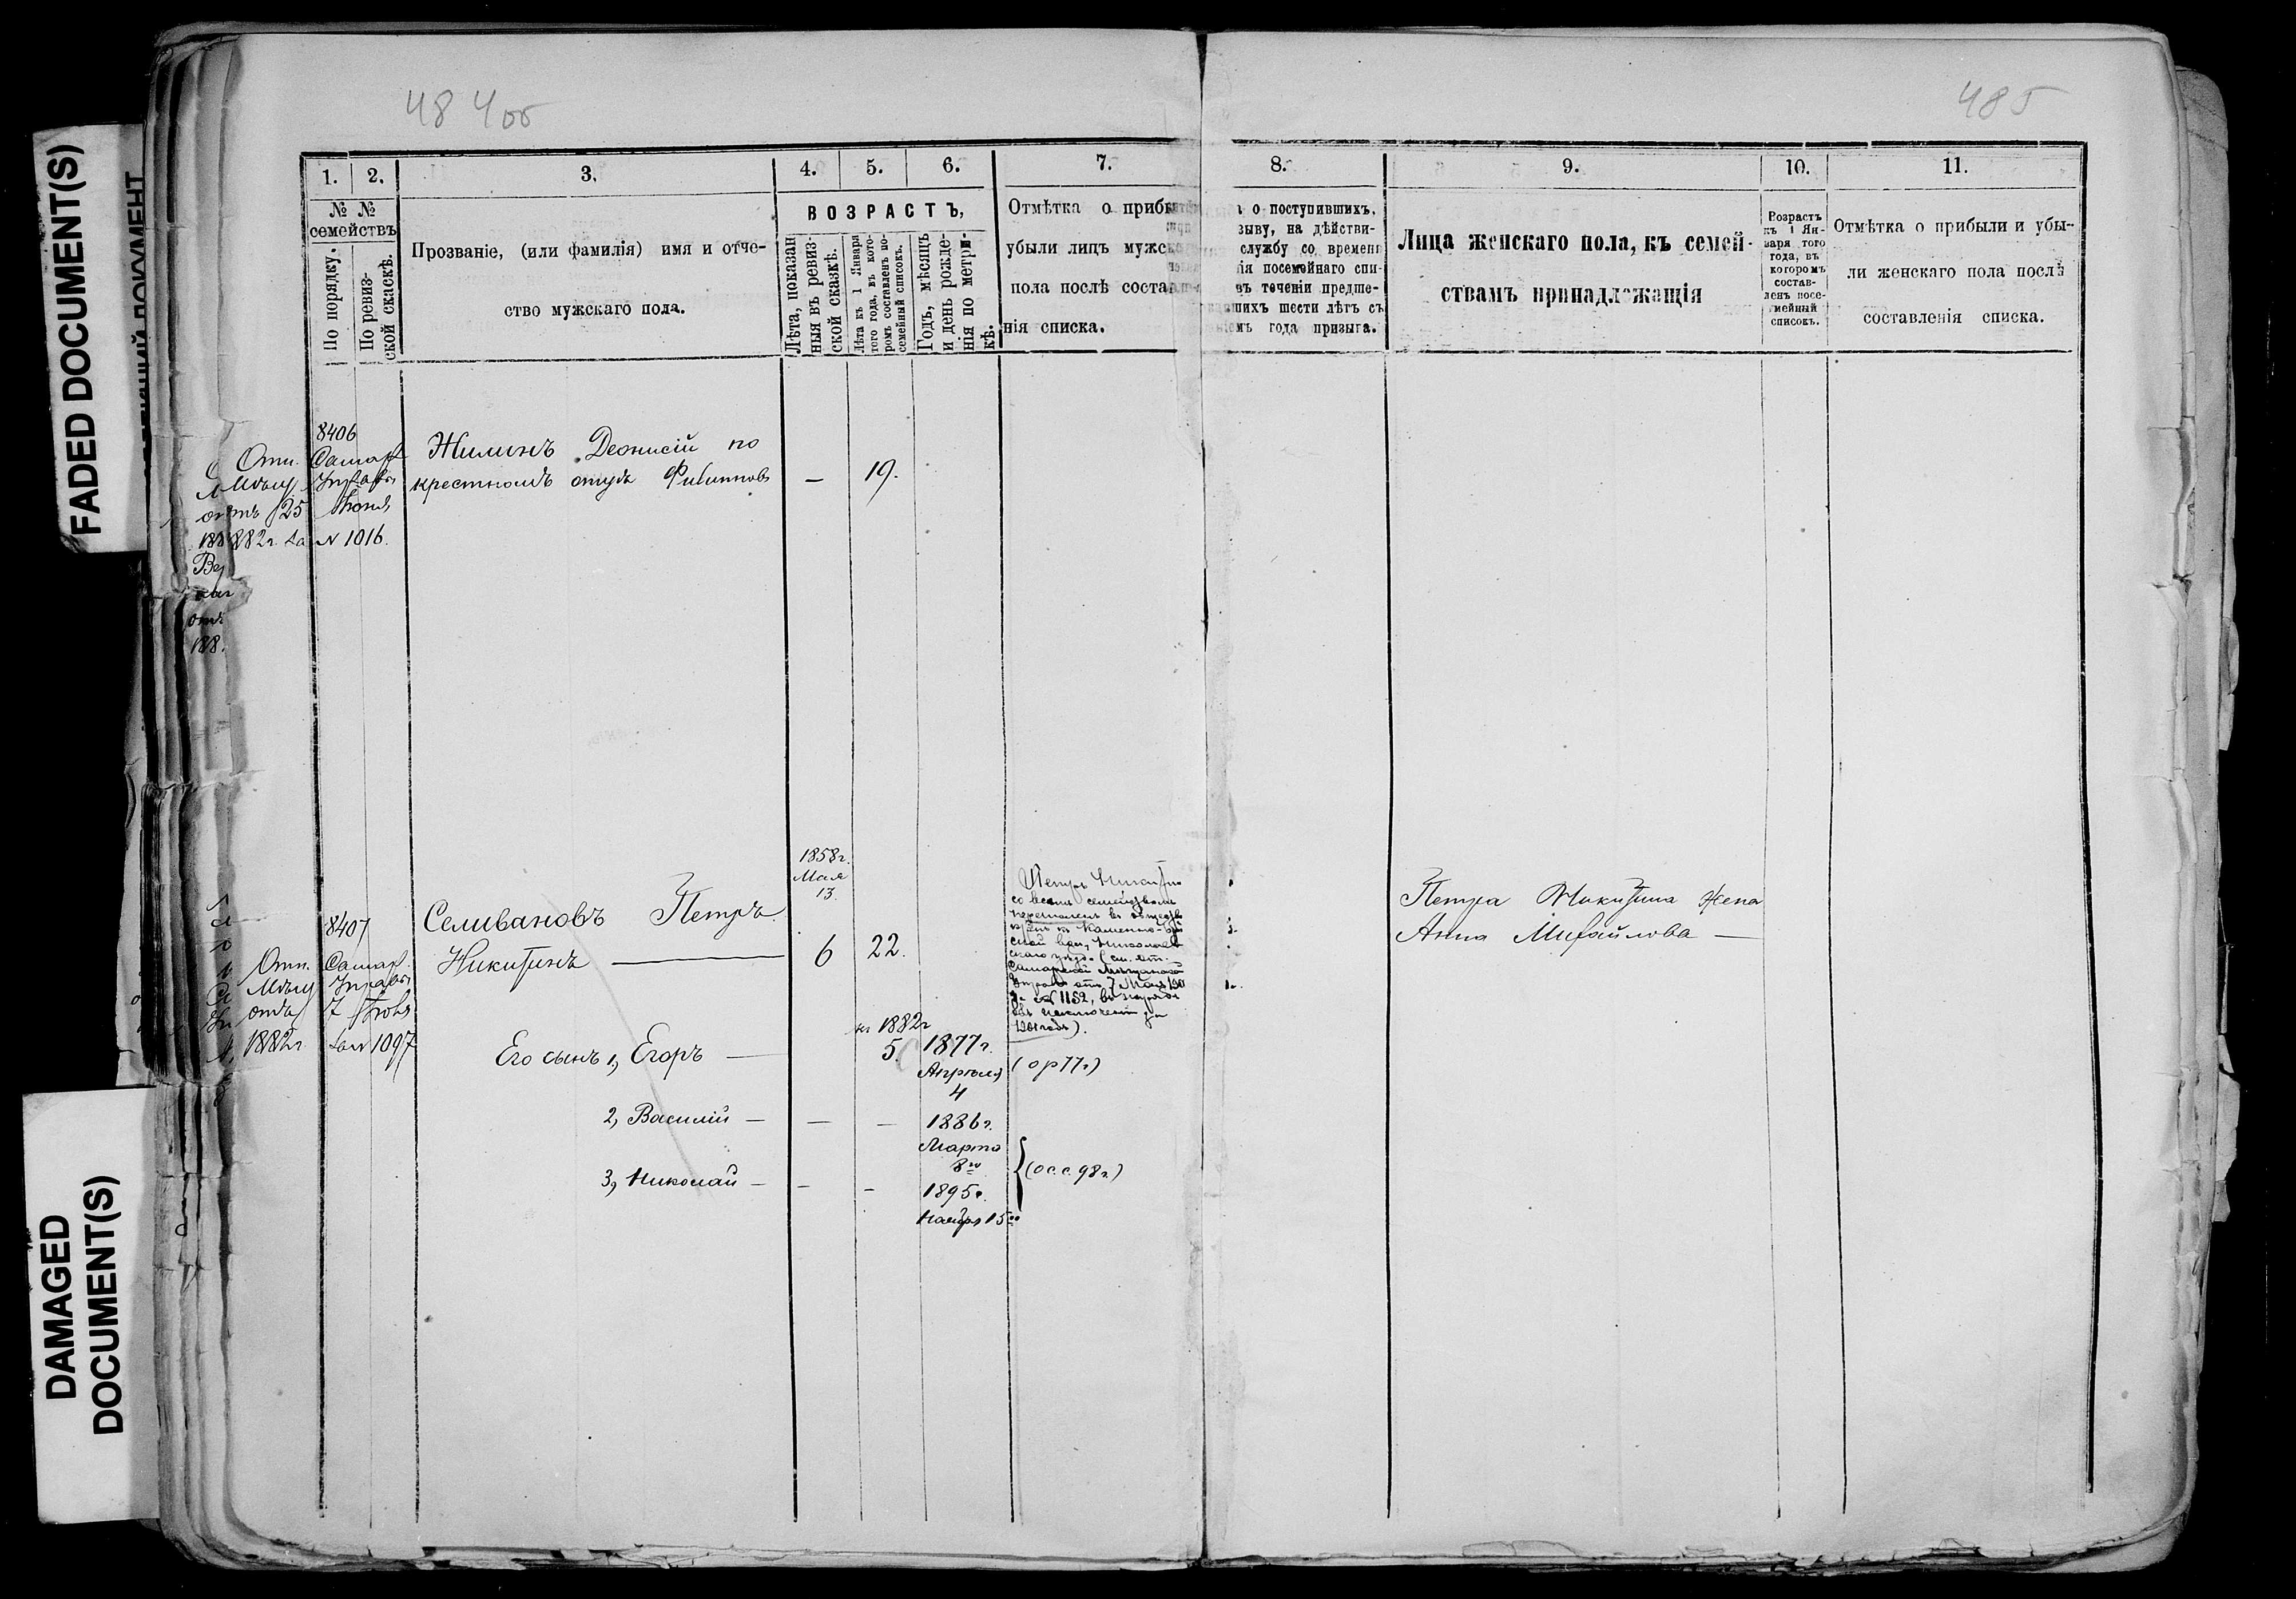 484об
485
FADED DOCUMENT(S)
DAMAGED
DOCUMENT(S)
1. 2. 3. 4. 5. 6. 7. 8. 9. 10. 11.
№ №
семействъ
По порядку.
По ревиз-
ской скаскѣ.
Прозваніе, (или фамилія) имя и отче-
ство мужскаго пола.
ВОЗРАСТЪ,
Лѣта, показан
ныя въ ревиз-
ской сказкѣ.
Лѣта къ 1 Января
того года, въ кото-
ромъ составленъ по-
семейный списокъ.
Годъ, мѣсяцъ
и день рожде-
нія по метри-
кѣ.
Отмѣтка о прибы
убыли лицъ мужск
пола послѣ состав
нія списка.
о поступившихъ,
зыву, на дѣйстви-
службу со времени
ія посемейнаго спи-
въ теченіи предше-
шихъ шести лѣтъ съ
емъ года призыва.
Лица женскаго пола, къ семей-
ствамъ принадлежащія
Возрастъ
къ 1 Ян-
варя того
года, въ
которомъ
состав-
ленъ посе-
мейный
списокъ.
Отмѣтка о прибыли и убы-
ли женскаго пола послѣ
составленія списка.
8406
Отн. Самар.
Мѣщ. Управы
отъ 25 Іюня
1882г. за № 1016.
Жилинъ Деонисій по
крестному отцу Филипповъ — 19.
8407
Отн. Самар.
Мѣщ Управы
отъ 7 Іюля
1882г. за № 1097
Селивановъ Петръ
Никитинъ
1858г.
Мая
13.
6 22.
Петръ Никитинъ
со всемъ семействомъ
перечисленъ въ общество
Самарской Мѣщанской
Управы отъ 7 Мая 190
за № 1152,
1901 годъ).
Его сынъ 1, Егоръ —
къ 1882г
5.
1877г.
Апрѣля
4
(ор77г)
2, Василій — — —
1886г.
Марта
8го
3, Николай — — —
1895г.
Ноября 15го
(осс98г.)
Петра Никитина жена
Анна Михайлова —